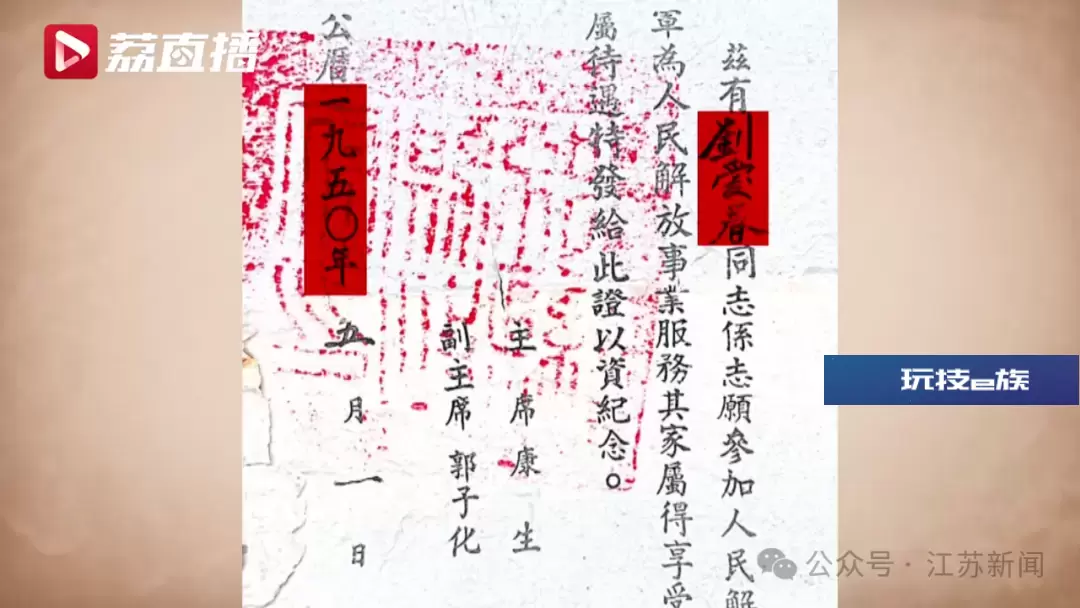 荔直播
茲有劉愛春同志係志願參加人民解
軍為人民解放事業服務其家屬得享受
屬待遇特發給此證以資紀念。
主席康生
副主席郭子化
公曆一九五〇年五月一日
玩技e族
公众号·江苏新闻